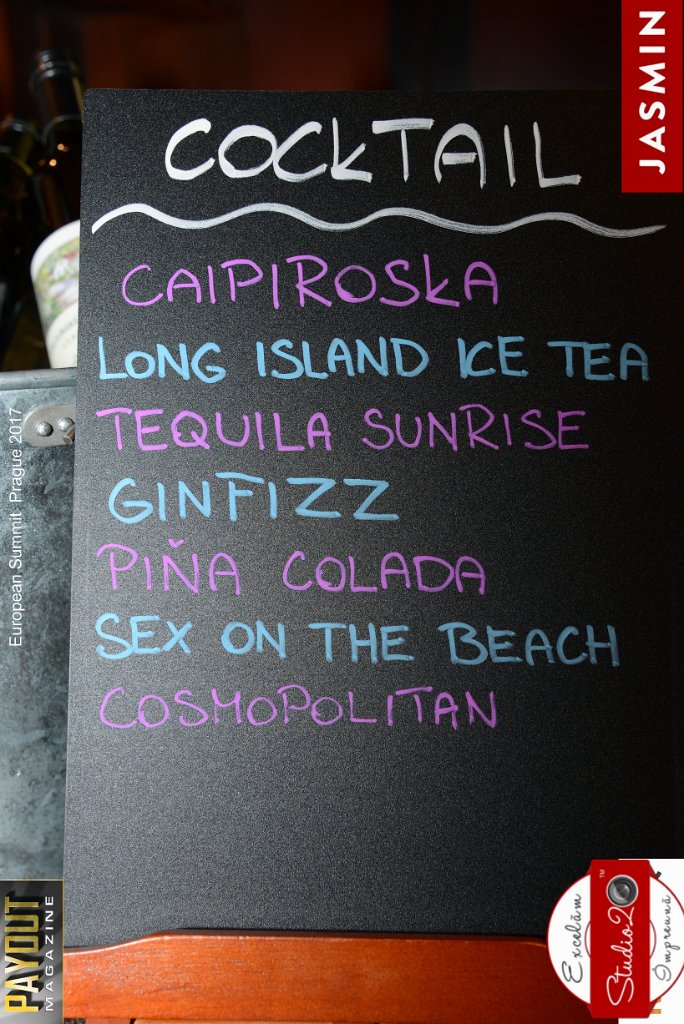 JASMIN
COCKTAIL
CAIPIROSKA
LONG ISLAND ICE TEA
TEQUILA SUNRISE
GINFIZZ
PIŇA COLADA
SEX ON THE BEACH
COSMOPOLITAN
European Summit Prague 2017
PAYOUT
MAGAZINE
Excelăm
Studio20 ™
Împreună